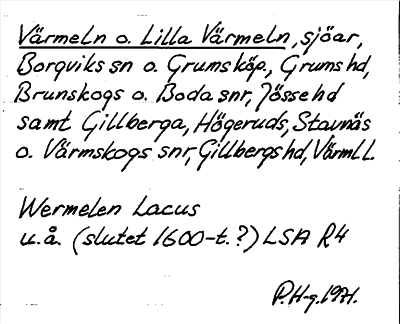 Värmeln o. Lilla Värmeln, sjöar,
Borgviks sn o. Grums köp., Grums hd,
Brunskogs o. Boda snr, Jösse hd
samt Gillberga, Högeruds, Stavnäs
o. Värmskogs snr, Gillbergs hd, Värml l.
Wermelen Lacus
u.å. (slutet 1600-t.?) LSA R4
P.H-g. 1971.